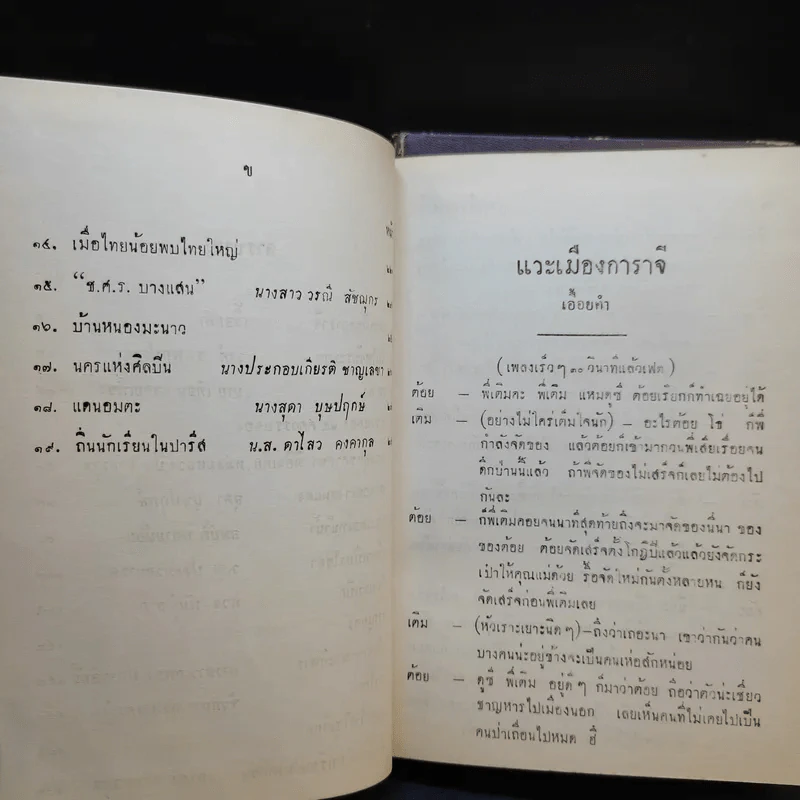 ข
๑๔. เมื่อไทยน้อยพบไทยใหญ่
๑๕. “ช.ศ.ร. บางแสน” นางสาว วรณี สัชฌุกร
๑๖. บ้านหนองมะนาว
๑๗. นครแห่งศิลปิน นางประกอบเกียรติ ชาญเลขา
๑๘. แดนอมตะ นางสุดา บุษปฤกษ์
๑๙. ถิ่นนักเรียนในปารีส น.ส. ดาไสว คงคากุล
แวะเมืองการาจี
เอื้อยคำ
(เพลงเร็วๆ ๓๐ วินาทีแล้วเฟด)
ต้อย – พี่เติมคะ พี่เติม แหมดูซี ต้อยเรียกก็ทำเฉยอยู่ได้
เติม – (อย่างไม่ใคร่เต็มใจนัก) – อะไรต้อย โธ่ ก็พี่
กำลังจัดของ แล้วต้อยก็เข้ามากวนพี่เสียเรื่อยจน
ดึกป่านนี้แล้ว ถ้าพี่จัดของไม่เสร็จก็เลยไม่ต้องไป
กันละ
ต้อย – ก็พี่เติมคอยจนนาทีสุดท้ายถึงจะมาจัดของนี่นา ของ
ของต้อย ต้อยจัดเสร็จตั้งโกฏิปีแล้วแล้วยังจัดกระ
เป๋าให้คุณแม่ด้วย รื้อจัดใหม่กันตั้งหลายหน ก็ยัง
จัดเสร็จก่อนพี่เติมเลย
เติม – (หัวเราะเยาะนิดๆ)–ถึงว่าเถอะนา เขาว่ากันว่าคน
บางคนน่ะอยู่ข้างจะเป็นคนเห่อสักหน่อย
ต้อย – ดูซี พี่เติม อยู่ดีๆ ก็มาว่าต้อย ถือว่าตัวน่ะเชี่ยว
ชาญหารไปเมืองนอก เลยเห็นคนที่ไม่เคยไปเป็น
คนป่าเถื่อนไปหมด ฮึ